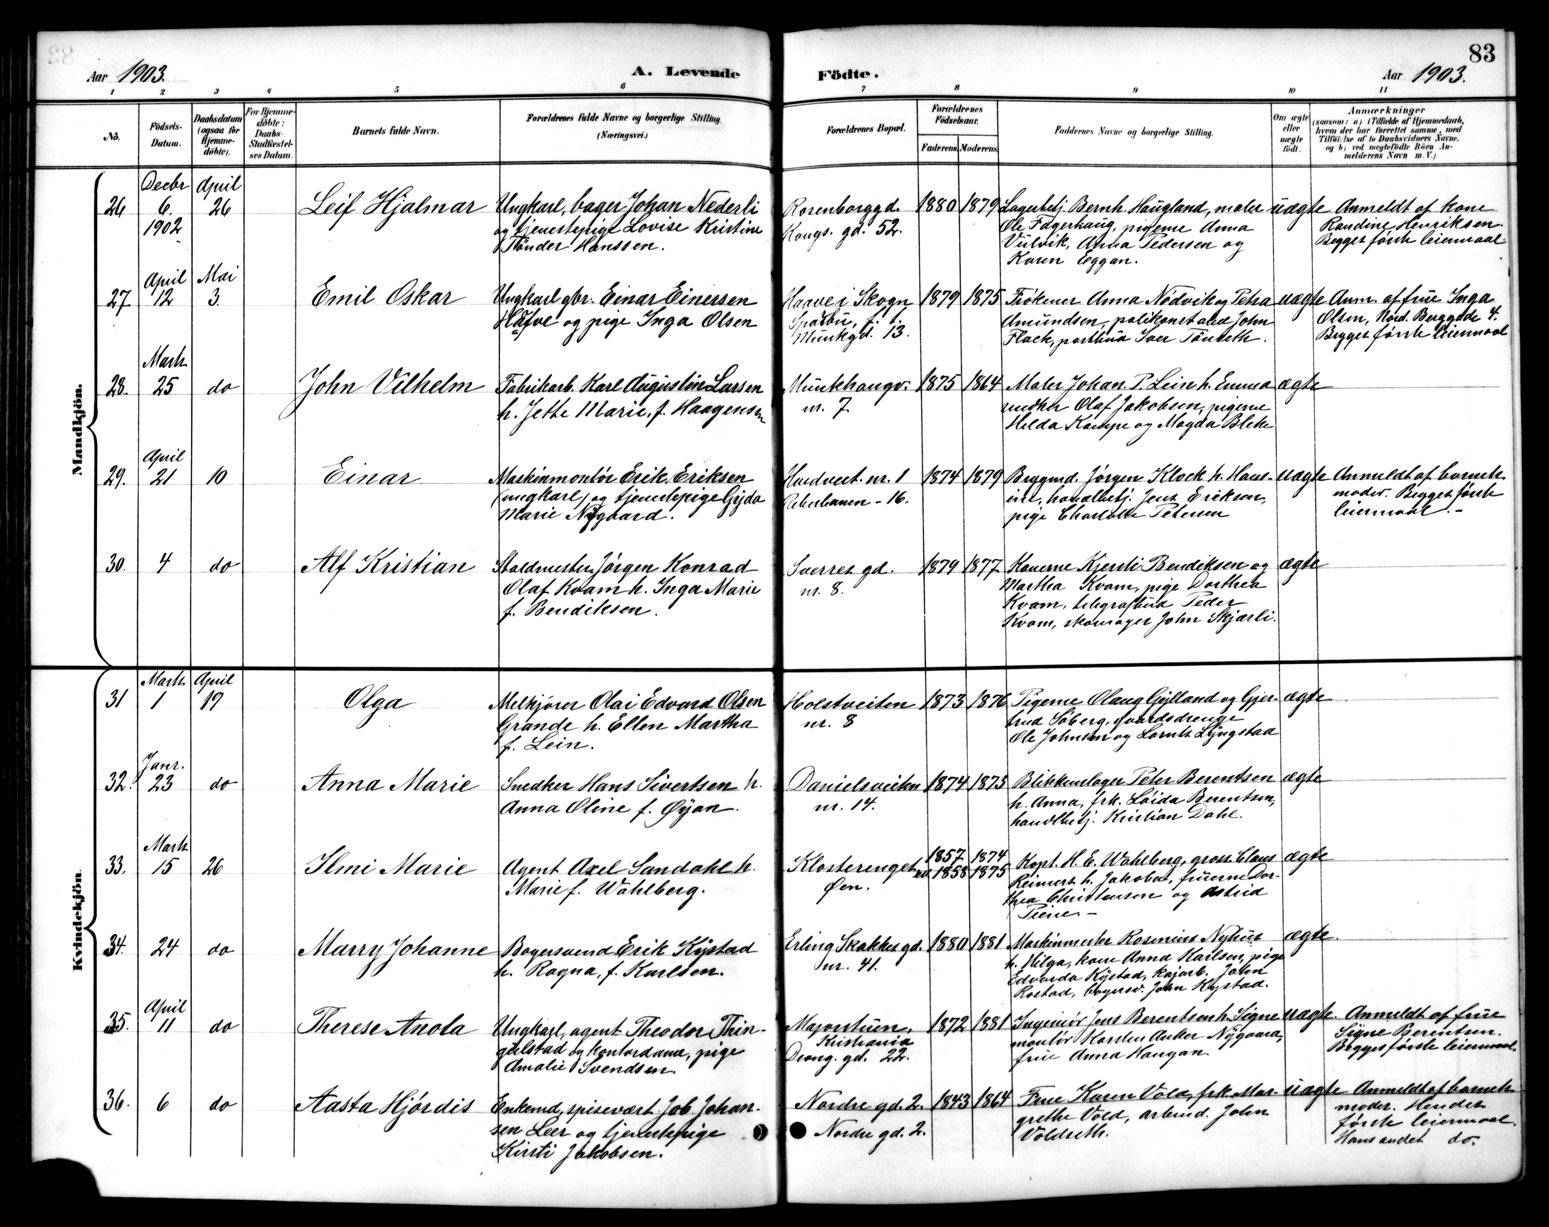 83
Aar 1903.
A. Levende
Födte.
Aar 1903.
1 2 3 4 5 6 7 8 9 10 11
No.
Födsels-Datum.
Daabsdatum (ogsaa for Hjemme-döbte).
For Hjemme-döbte: Daabs-Stadfæstel-ses Datum.
Barnets fulde Navn.
Forældrenes fulde Navne og borgerlige Stilling. (Næringsvei.)
Forældrenes Bopæl.
Forældrenes Födselsaar.
Faderens. Moderens.
Faddernes Navne og borgerlige Stilling.
Om ægte eller uægte födt.
Anmærkninger
(saasom: a) i Tilfælde af Hjemmedaab, hvem der har forrettet samme, med Tilföielse af to Daabsvidners Navne, og b) ved uægtefödte Börn An-melderens Navn m. V.)
Mandkjön.
26
Decbr 6. 1902
April 26
Leif Hjalmar
Ungkarl, bager Johan Nederli
og tjenestepige Lovise Kristine
Tönder Hanssen.
Rosenborggd.
Kongs. gd. 52.
1880 1879
Lagerbetj. Bernh. Haugland, maler
Ole Fagerhaug, pigerne Anna
Vulvik, Anna Pedersen og
Karen Eggan.
uægte
Anmeldt af kone
Randine Henriksen.
Begges förste leiermaal.
27.
April 12
Mai 3
Emil Oskar
Ungkarl gbr. Einar Einersen
Hafve og pige Inga Olsen
Haave i Skogn
Sparbu,
Munkgd. 13.
1879 1875
Frökener Anna Nödvik og Petra
Amundsen, politikonstabel John
Flack, postbud Iver Tönseth.
uægte
Anm. af frue Inga
Olsen, Nord. Berggade 4.
Begges förste leiermaal
28.
Marts 25
do
John Vilhelm
Fabrikarb. Karl Augustin Larsen
h. Jette Marie, f. Haagensen
Munkhaugv.
nr. 7.
1875 1864
Maler Johan P. Lein h. Emma
snedker Olaf Jakobsen, pigerne
Hilda Kampe og Magda Bleke
ægte
29.
April 21
10
Einar
Maskinmontör Erik Eriksen
(ungkarl) og tjenestepige Gyda
Marie Nygaard.
Hvedveit. nr. 1
Reberbanen - 16.
1874 1879
Brygmd. Jörgen Klock h. Hans-
ine, handelsbetj. Jens Eriksen,
pige Charlotte Petersen
uægte
Anmeldt af barnets
moder. Begges förste
leiermaal. -
30.
4
do
Alf Kristian
Staldmester Jörgen Konrad
Olaf Kvam h. Inga Marie
f. Bendiksen.
Sverres gd.
nr. 8.
1879 1877
Konerne Kjersti Bendiksen og
Martha Kvam, pige Dorthea
Kvam, telegrafbud Peder
Kvam, skomager John Skjærli.
ægte
Kvindekjön.
31
Marts 1
April 19
Olga
Melkjörer Olai Edvard Olsen
Grande h. Ellen Martha
f. Lein.
Holstveiten
nr. 8
1873 1876
Pigerne Olaug Gylland og Gjer-
trud Söberg, gaardsdrenge
Ole Johnsen og Lornts Lyngstad
ægte
32.
Janr. 23
do
Anna Marie
Snedker Hans Sivertsen h.
Anna Oline f. Öyan.
Danielsveiten
nr. 14.
1874 1873
Blikkenslager Peter Berentsen
h. Anna, frk. Löida Berentsen,
handlbetj. Kristian Dahl.
ægte
33.
Marts 15
26
Ilmi Marie
Agent Axel Sandahl h.
Marie f. Wahlberg.
Klosterenget
Öen.
1857 1874
1858 1875
Kapt. H. E. Wahlberg, gross. Claus
Reimert h. Jakoba, fruerne Dor-
thea Christensen og Astrid
Piene. -
ægte
34.
24
do
Marry Johanne
Bagersvend Erik Kystad
h. Ragna, f. Karlsen.
Erling Skakkes gd.
nr. 41.
1880 1881
Maskinmester Rosenius Nyhus
h. Hilga, kone Anna Karlsen, pige
Edvarda Kystad, kajarb. John
Rostad, bagersv. John Kystad.
ægte.
35.
April 11
do
Therese Anota
Ungkarl, agent Theodor Thin-
gelstad og kontordame, pige
Amalie Svendsen
Majorstuen,
Kristiania
Dronng. gd. 22.
1872 1881
Ingeniör Jens Berentsen h. Signe
montör Karsten Anker Nygaard,
frue Anna Haugan.
uægte.
Anmeldt af frue
Signe Berentsen.
Begges förste leiermaal.
36.
6
do
Aasta Hjördis
Enkemd., spisevært Job Johan-
sen Leer og tjenestepige
Kirsti Jakobsen.
Nordre gd. 2.
Nordre gd. 2.
1843 1864
Frue Karen Vold, frk. Mar-
grethe Vold, arbmd. John
Voldseth.
uægte
Anmeldt af barnets
moder. Hendes
förste leiermaal.
Hans andet do.